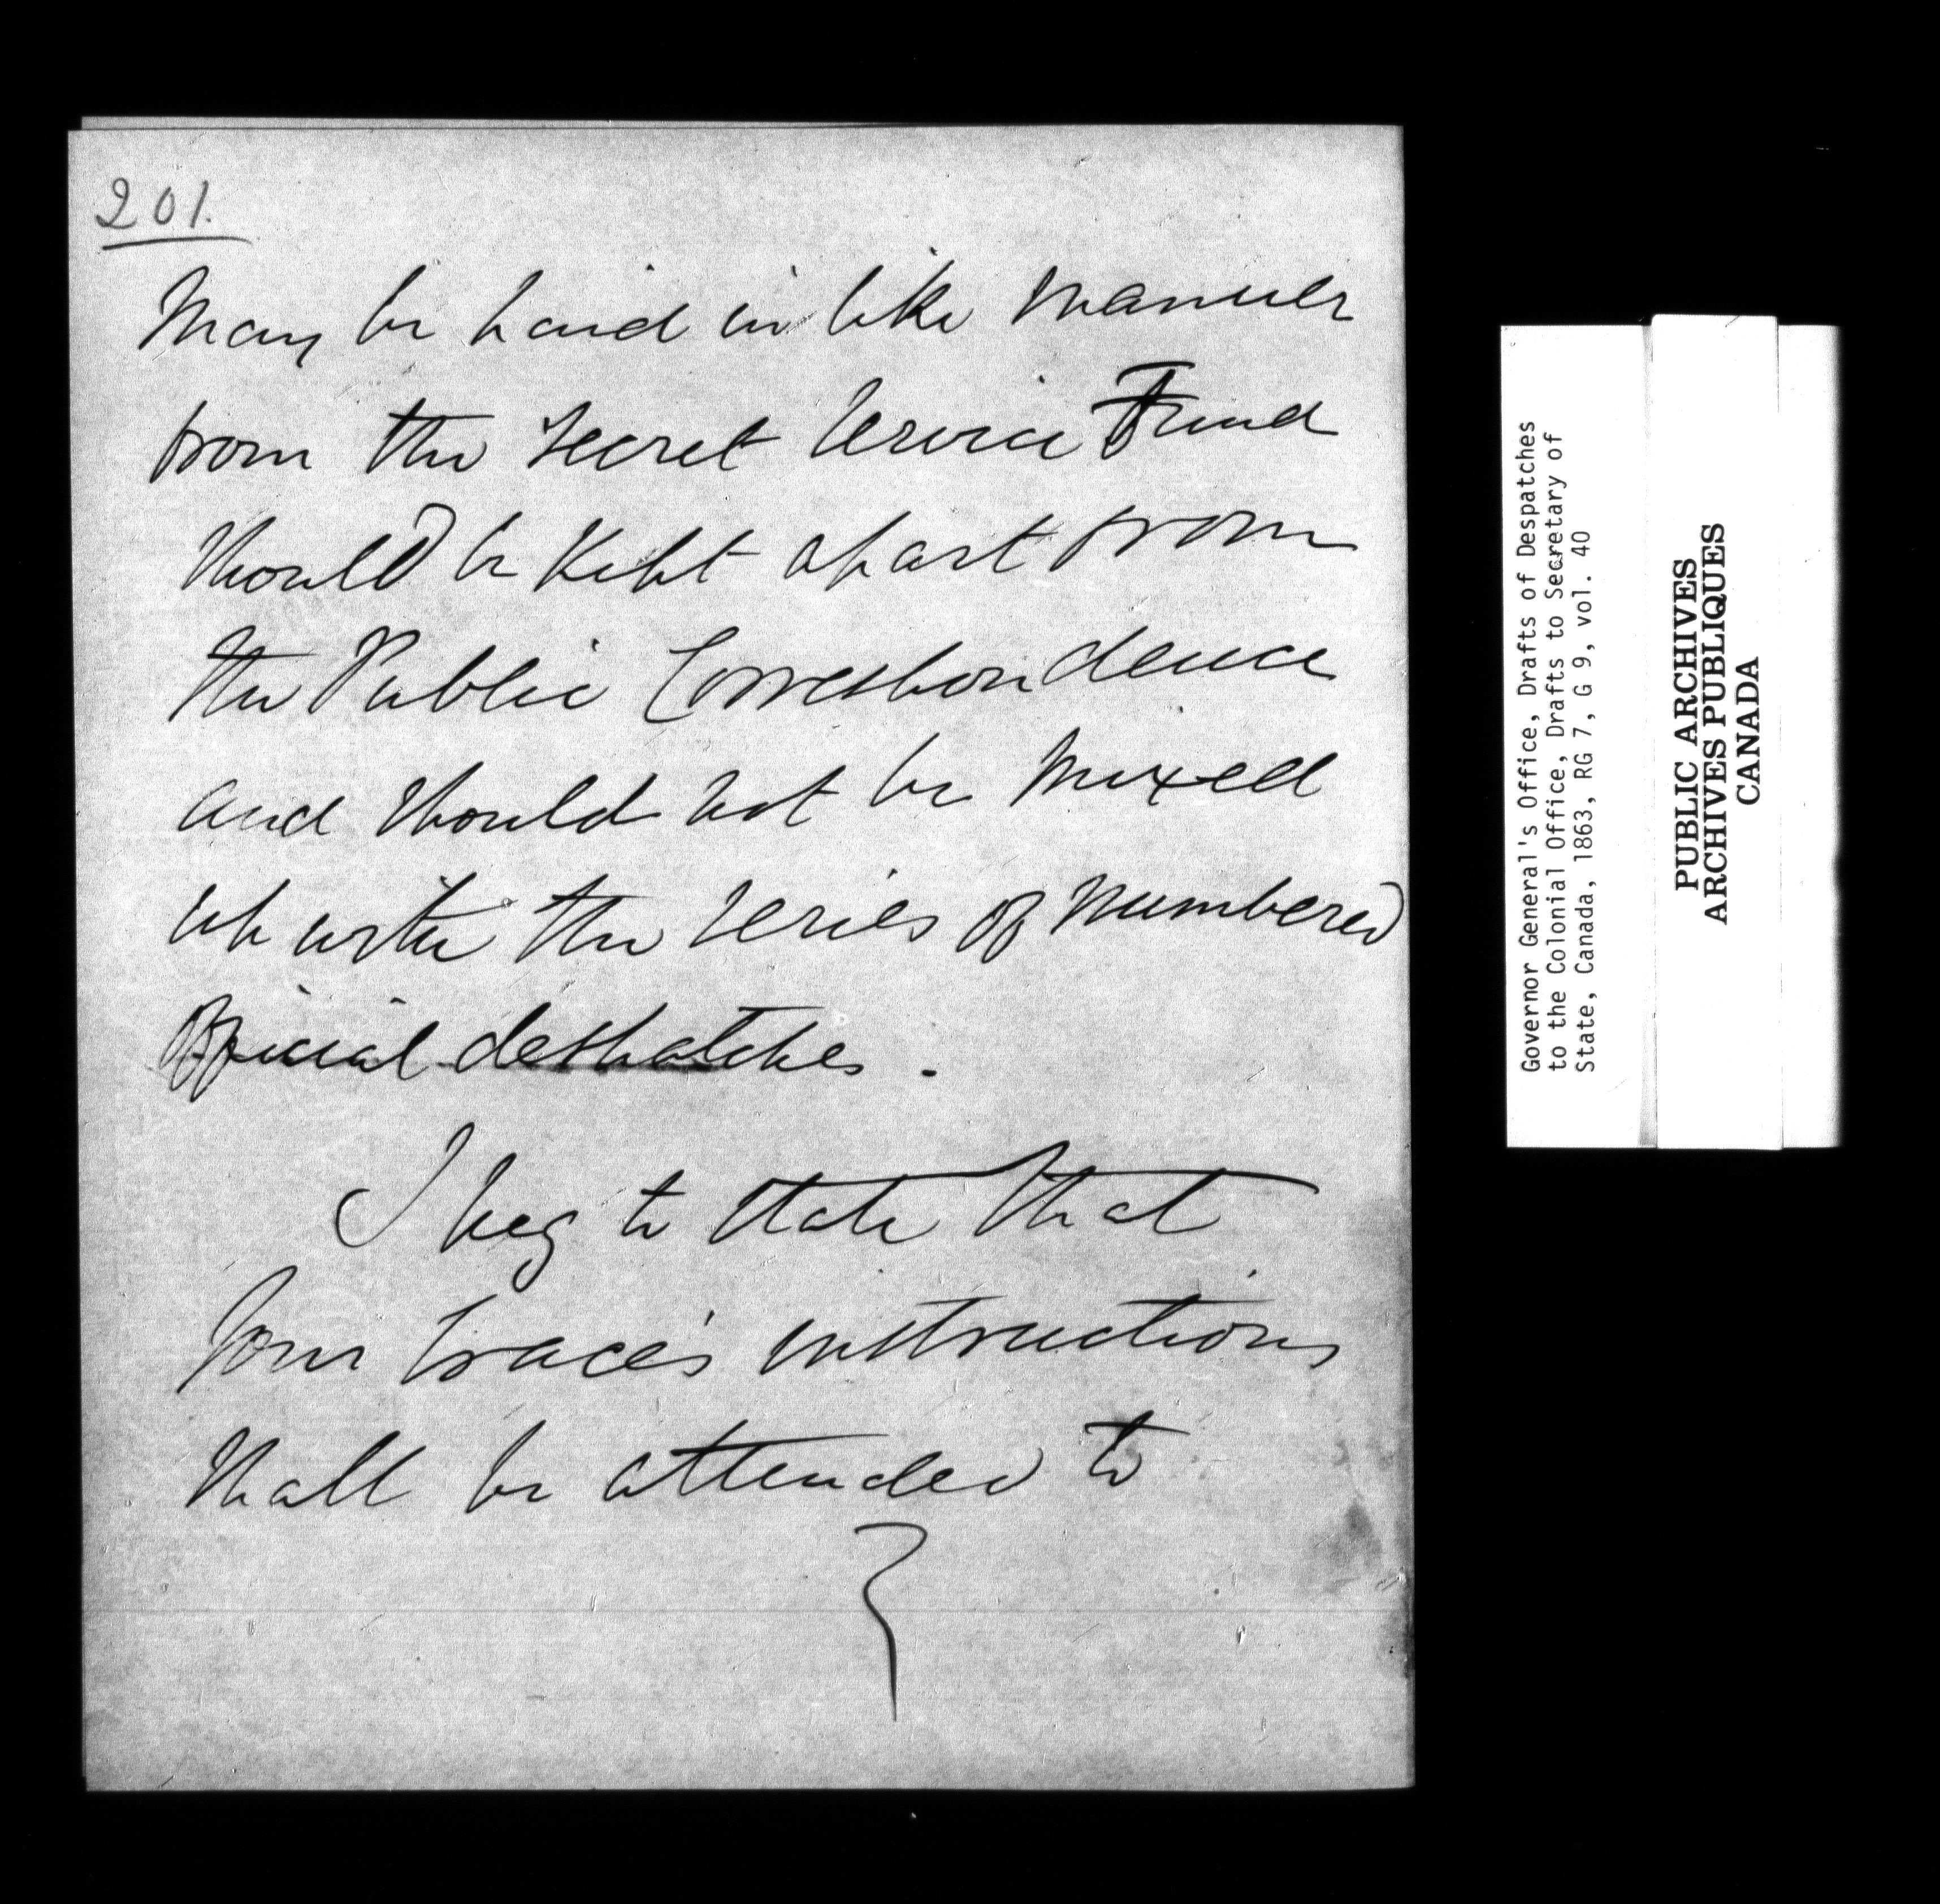 201.
May be paid in like manner
from the Secret Service Fund
should be kept apart from
the Public Correspondence
and should not be mixed
up with the series of numbered
Official despatches.
I beg to state that
Your Grace's instructions
shall be attended to
Governor General's Office, Drafts of Despatches
to the Colonial Office, Drafts to Secretary of
State, Canada, 1863, RG 7, G 9, vol. 40
PUBLIC ARCHIVES
ARCHIVES PUBLIQUES
CANADA